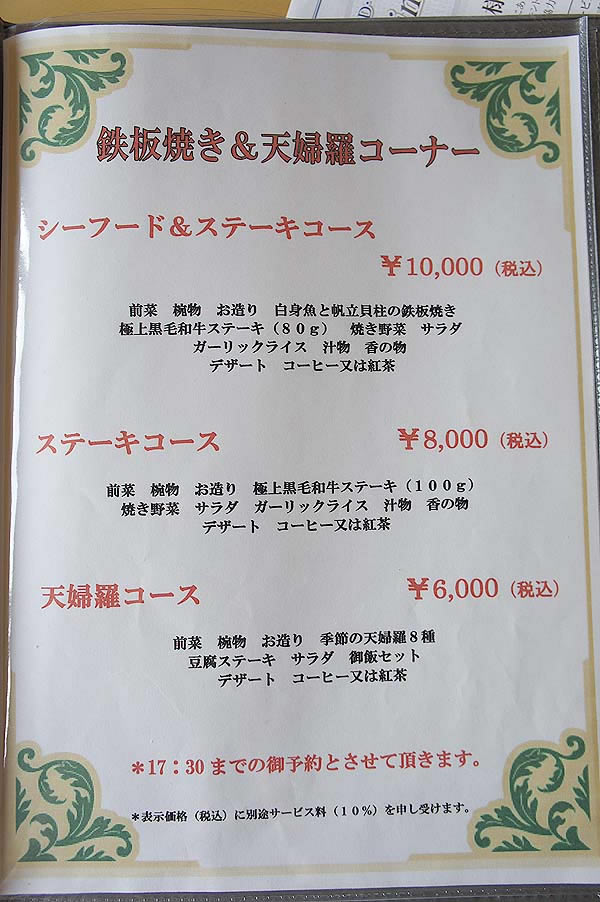 鉄板焼き＆天婦羅コーナー
シーフード＆ステーキコース
￥10,000（税込）
前菜　椀物　お造り　白身魚と帆立貝柱の鉄板焼き
極上黒毛和牛ステーキ（８０ｇ）　焼き野菜　サラダ
ガーリックライス　汁物　香の物
デザート　コーヒー又は紅茶
ステーキコース　￥8,000（税込）
前菜　椀物　お造り　極上黒毛和牛ステーキ（１００ｇ）
焼き野菜　サラダ　ガーリックライス　汁物　香の物
デザート　コーヒー又は紅茶
天婦羅コース　￥6,000（税込）
前菜　椀物　お造り　季節の天婦羅８種
豆腐ステーキ　サラダ　御飯セット
デザート　コーヒー又は紅茶
＊17：30までの御予約とさせて頂きます。
＊表示価格（税込）に別途サービス料（１０％）を申し受けます。